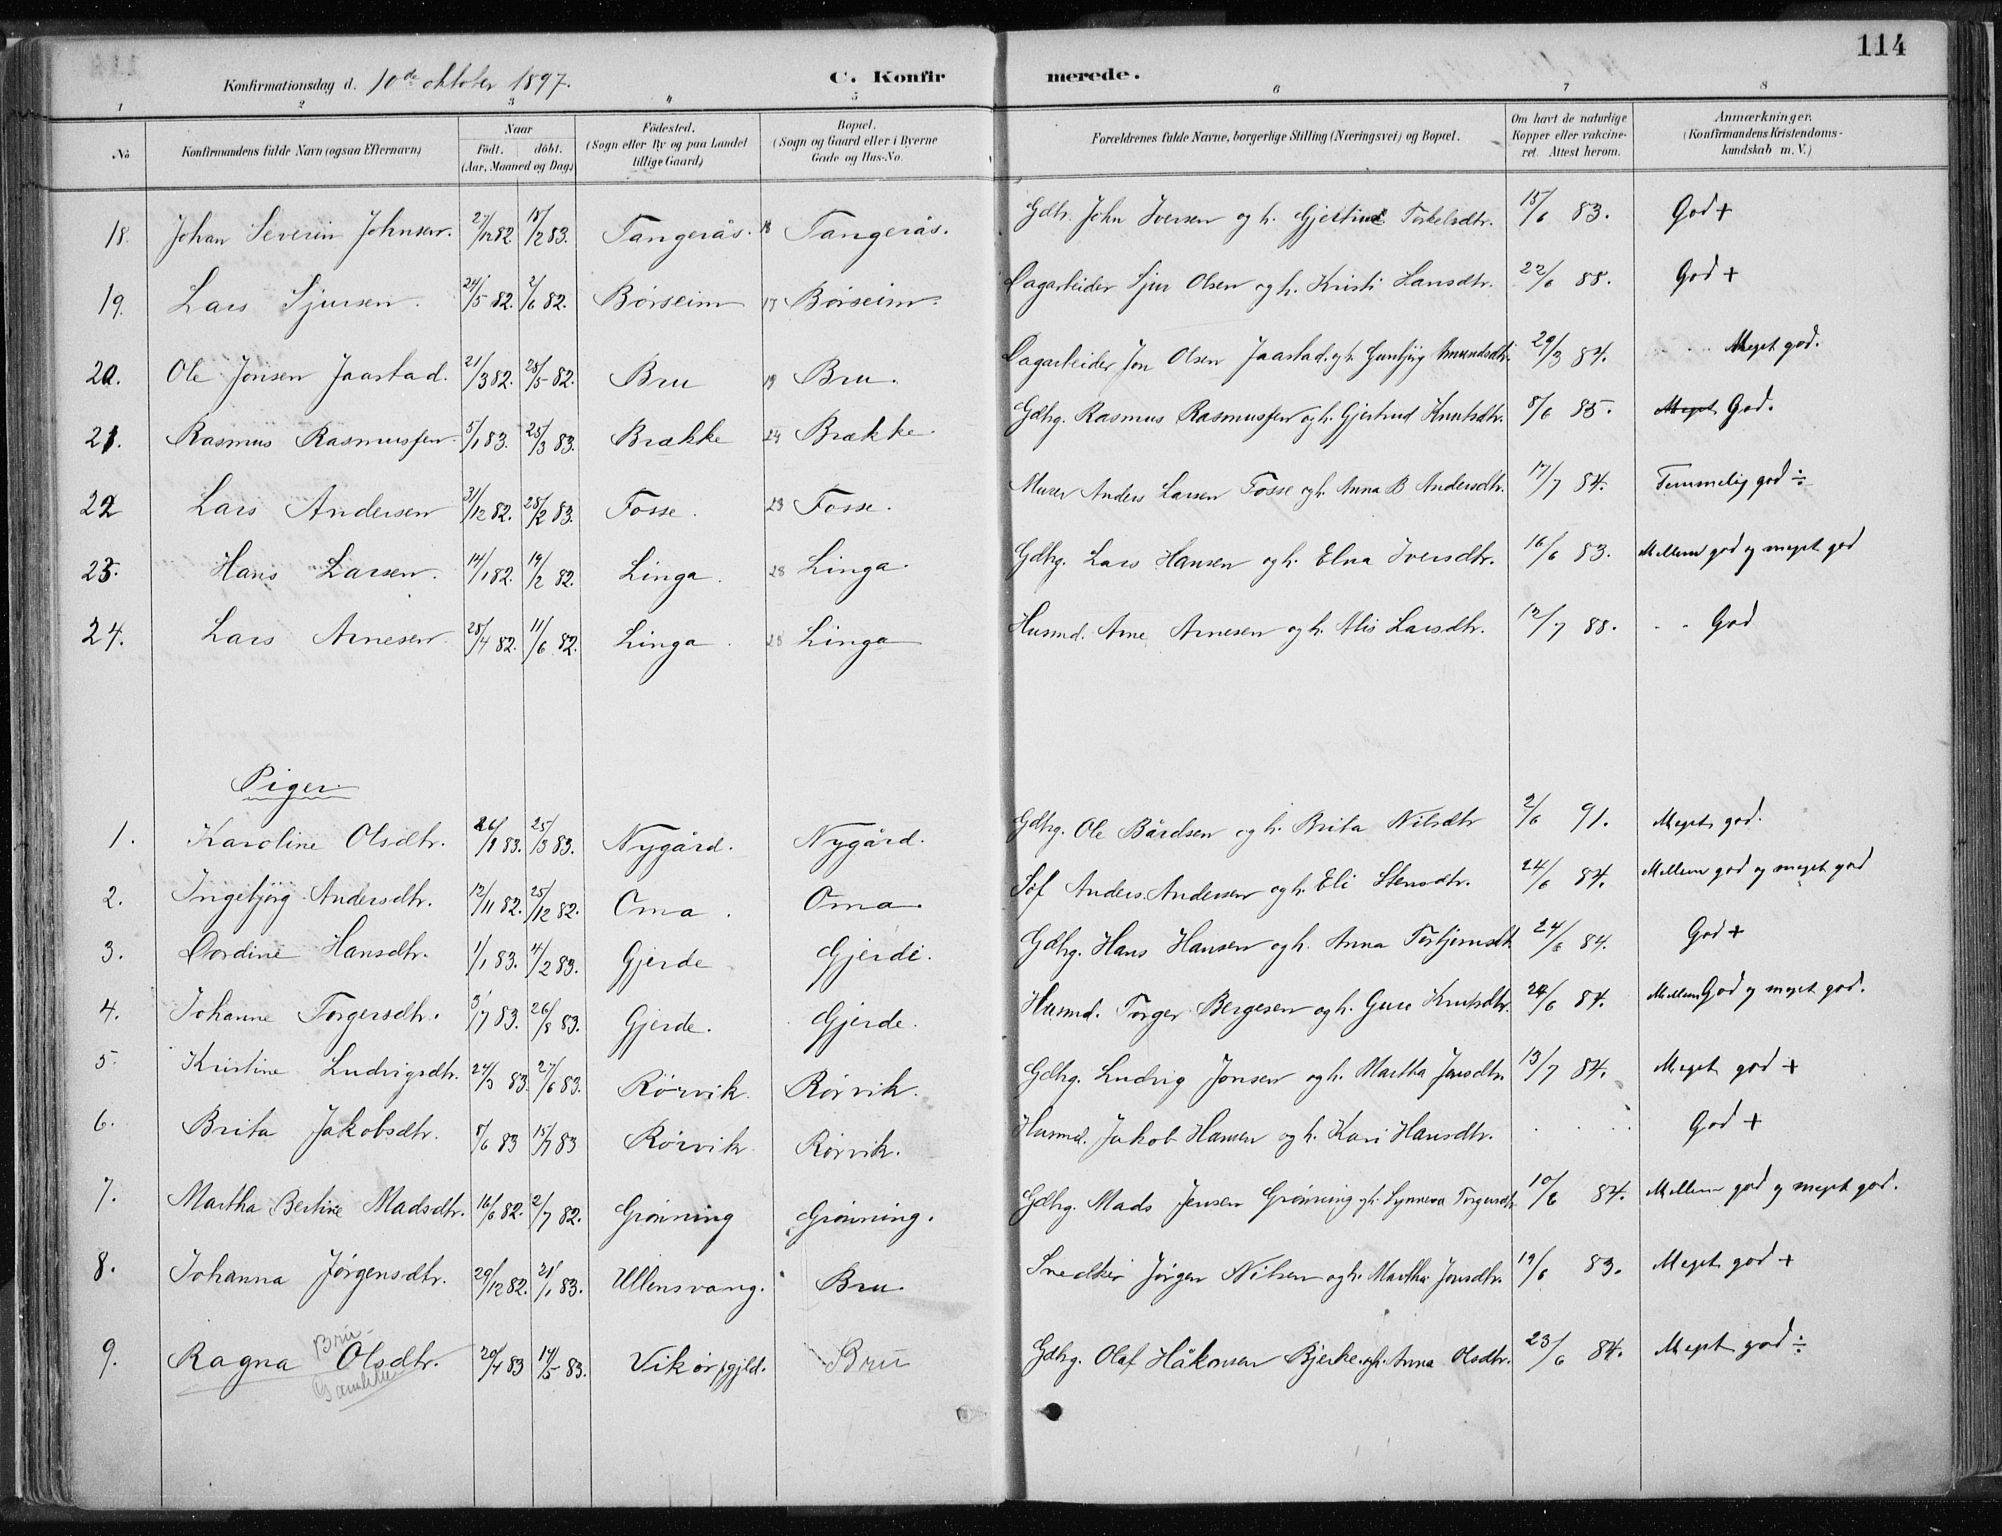 114
Konfirmationsdag d. 10de oktober 1897. C. Konfirmerede.
1 2 3 4 5 6 7 8
No Konfirmandens fulde Navn (ogsaa Efternavn) Naar Födt. döbt. (Aar, Maaned og Dag) Födested. (Sogn eller By og paa Landet tillige Gaard) Bopæl. (Sogn og Gaard eller i Byerne Gade og Hus-No. Forældrenes fulde Navne, borgerlige Stilling (Næringsvei) og Bopæl. Om havt de naturlige Kopper eller vakcineret. Attest herom. Anmærkninger. (Konfirmandens Kristendomskundskab m. V.)
18. Johan Severin Johnsen. 27/12 82 18/2 83. Tangerås. 18 Tangerås. Gdbr. John Iversen og h. Gjertine Torkelsdtr. 15/6 83. God +
19. Lars Sjursen. 24/5 82. 2/6 82. Börseim 17 Börseim. Dagarbeider Sjur Olsen og h. Kristi Hansdtr. 22/6 88. God +
20. Ole Jonsen Jaastad. 21/3 82. 28/5 82. Bru 19 Bru. Dagarbeider Jon Olsen Jaastad og h. Gunbjög Amundsdtr. 29/3 84. Meget god.
21. Rasmus Rasmussen. 5/1 83. 25/3 83. Brække 24 Brække. Gdbrg. Rasmus Rasmussen og h. Gjertrud Knutsdtr. 8/6 85. Meget God.
22 Lars Andersen 31/12 82. 25/2 83. Fosse. 23 Fosse. Murer Anders Larsen Fosse og h. Anna B Andersdtr. 17/7 84. Temmelig god ÷
23. Hans Larsen. 14/1 82. 19/2 82. Linga. 28 Linga. Gdbrg. Lars Hansen og h. Elna Iversdtr. 16/6 83. Mellem god og meget god
24. Lars Arnesen 28/4 82. 11/6 82. Linga. 28 Linga Husmd. Arne Arnesen og h. Alis Larsdtr. 12/7 88. God
Piger.
1. Karoline Olsdtr. 26/1 83. 25/3 83. Nygård. Nygård. Gdbrg. Ole Bårdsen og h. Brita Nilsdtr 2/6 91. Meget god.
2. Ingebjörg Andersdtr. 12/11 82. 25/12 82. Oma. Oma. Anders Andersen og h. Eli Stensdtr. 24/6 84. Mellem god og meget god
3. Dordine Hansdtr. 1/1 83. 4/2 83. Gjerde Gjerde. Gdbrg. Hans Hansen og h. Anna Torbjørnsdt 24/6 84. God +
4. Johanne Torgersdtr. 3/7 83. 26/8 83. Gjerde. Gjerde. Husmd. Torger Bergesen og h. Guro Knutsdtr. 24/6 84. Mellem God og meget god.
5 Kristine Ludvigsdtr. 24/3 83. 27/6 83. Rörvik. Rörvik. Gdbrg. Ludvig Jonsen og h. Martha Jonsdtr. 13/7 84. Meget god +
6. Brita Jakobsdtr. 8/6 83 15/7 83 Rörvik Rörvik. Husmd. Jakob Hansen og h. Kari Hansdtr. God +
7. Martha Bertine Madsdtr. 16/6 82. 2/7 82. Grönning Grönning. Gdbrg. Mads Jensen Grönning og h. Synneva Torgersdtr 10/6 84. Mellem god og meget god.
8. Johanna Jörgensdtr. 29/12 82. 21/1 83. Ullensvang. Bru. Snedker Jörgen Nilsen og h. Martha Jonsdtr. 19/6 83. Meget god +
Bru
9. Ragna Olsdtr. 20/4 83 14/5 83. Vikör pgjld. Bru Gdbrg. Olaf Håkonsen Bjerke og h. Anna Olsdtr. 23/6 84. Meget god ÷